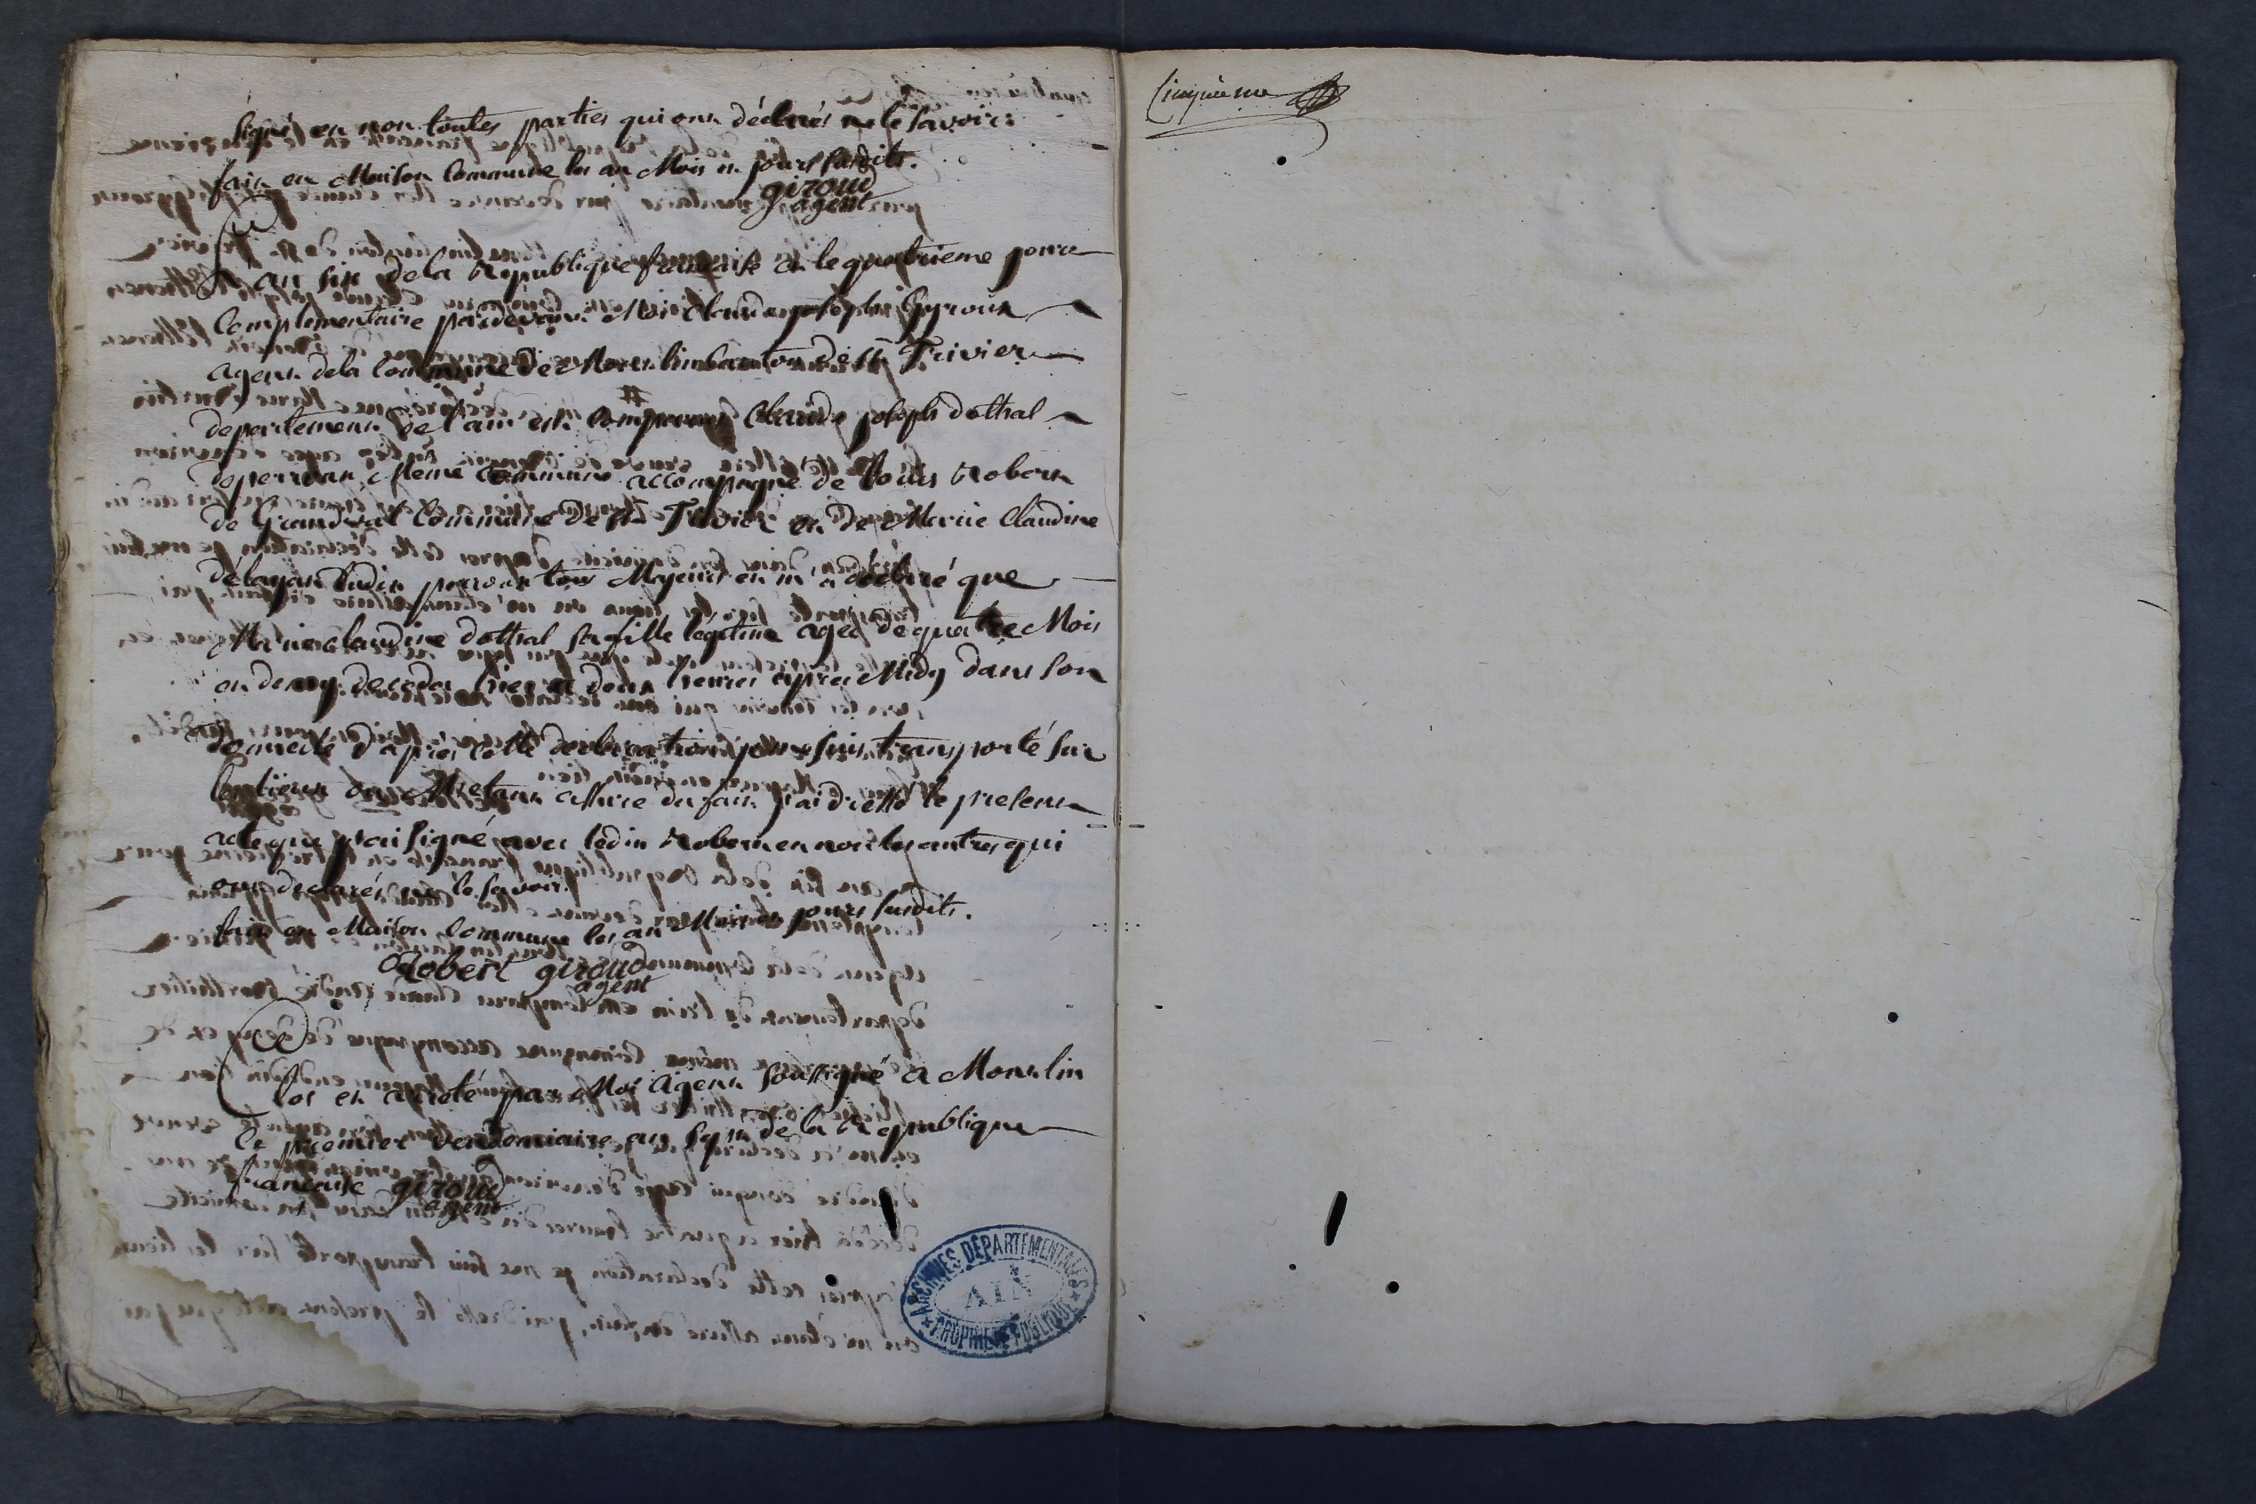 signé et non toutes parties qui ont déclarés ne le savoir:
fait en Maison Commune les an Mois et jours susdits.
giroud
agent
L'an six de la République française et le quatrieme jour
Complementaire pardevant Moi Claude joseph Gyroux
agent de la Commune de Mont lin canton de St Trivier
departement de l'ain est comparus Claude joseph dothal
de perrouan Meme Commune accompagné de Louis Robert
de Grandval Commune de St Trivier et de Marie Claudine
délayan dudit perrouan tous Majeurs et m'a déclaré que
Marie claudine dothal sa fille légitime agée de quatre Mois
et demy decedea hier a deux heures après Midy dans son
domicile d'après cette declaration je me suis transporté sur
les lieux ou M'etant assuré du fait j'ai dressé le present
acte que j'ai signé avec ledit Robert et non les autres qui
ont declarés ne le savoir.
fait en Maison Commune les an Mois et jours susdits.
Robert giroud
agent
Clos et areté par Moi Agent soussigné a Mont lin
le premier Vendemiaire an sept de la Republique
francaise giroud
agent
ARCHIVES DÉPARTEMENTALES
AIN
PROPRIÉTÉ PUBLIQUE
Cinquieme